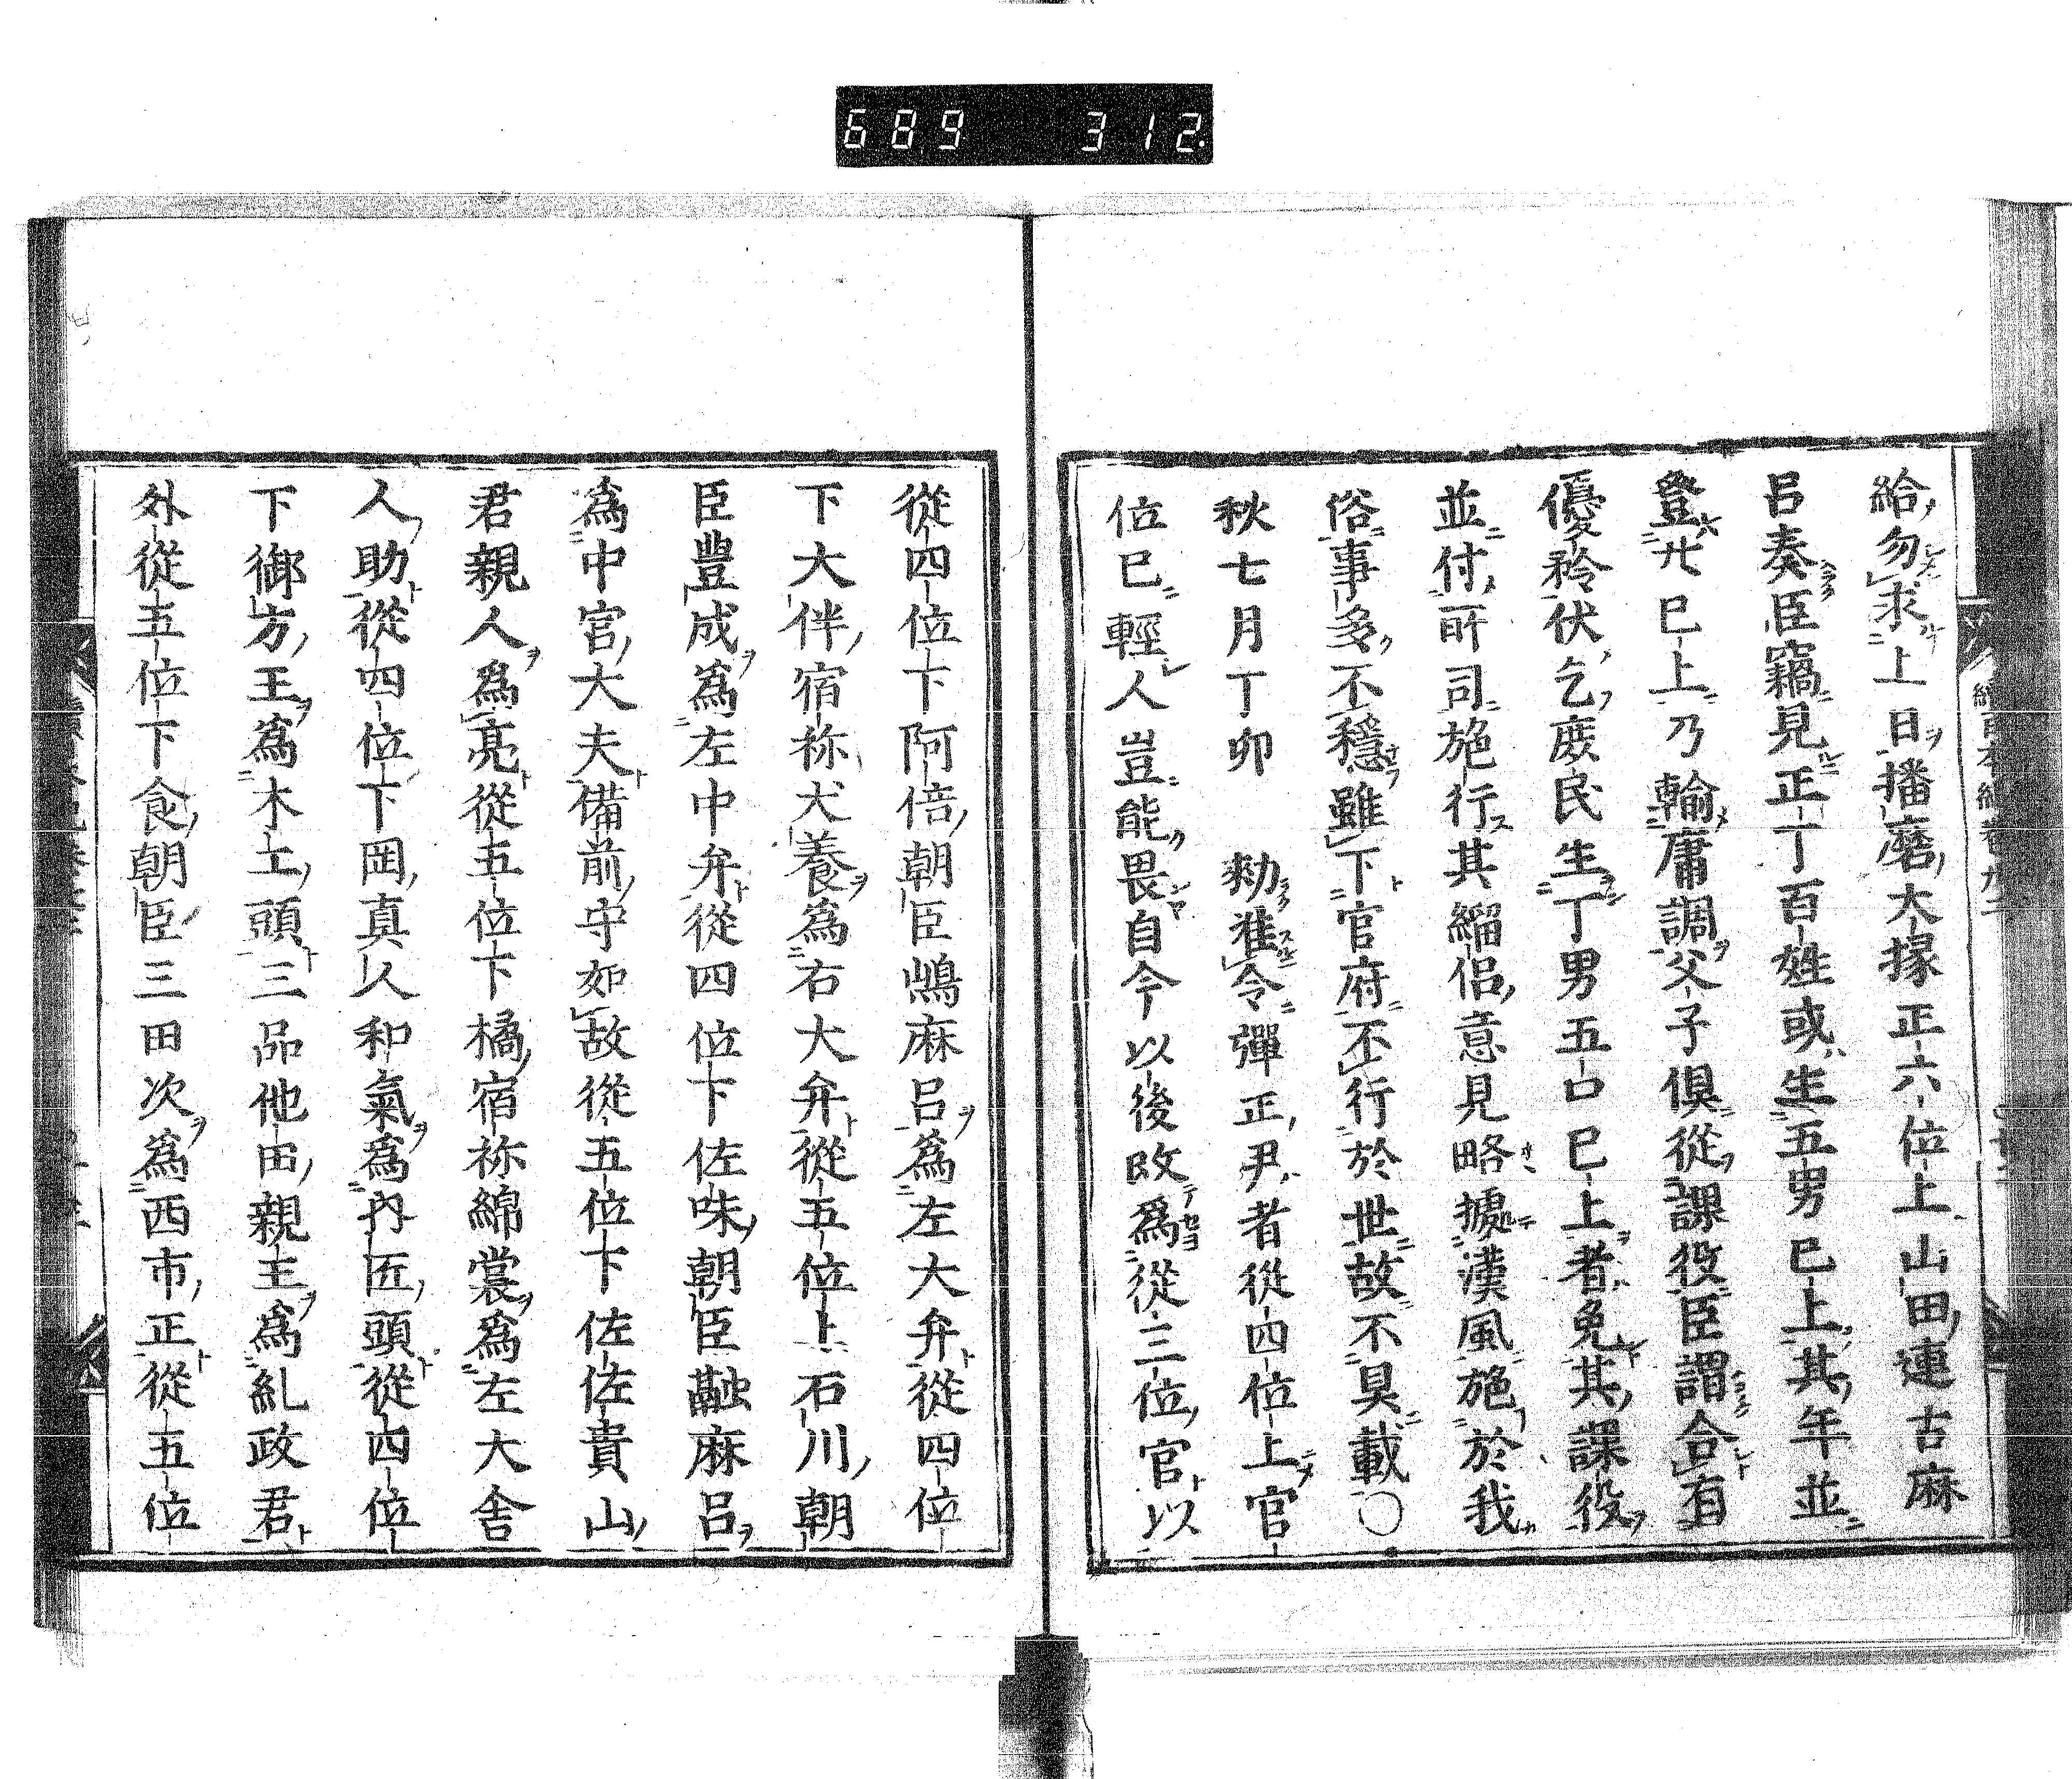 689 312
給勿求上日播磨大掾正六位上山田連古麻
呂奏臣竊見正丁百姓或生五男已上其年並
登廿已上乃輸庸調父子俱從課役臣謂合有
優矜伏乞庶民生丁男五口已上者免其課役
並付所司施行其緇侶意見略據漢風施於我
俗事多不穩雖下官府不行於世故不具載〇
秋七月丁卯 勑准令彈正尹者從四位上官
位已輕人豈能畏自今以後改爲從三位官以
從四位下阿倍朝臣嶋麻呂爲左大弁從四位
下大伴宿祢犬養爲右大弁從五位上石川朝
臣豊成爲左中弁從四位下佐味朝臣虫麻呂
爲中宮大夫備前守如故從五位下佐佐貴山
君親人爲亮從五位下橘宿祢綿裳爲左大舎
人助從四位下岡真人和氣爲內匠頭從四位
下御方王爲木工頭三品池田親王爲糺政君
外從五位下食朝臣三田次爲西市正從五位